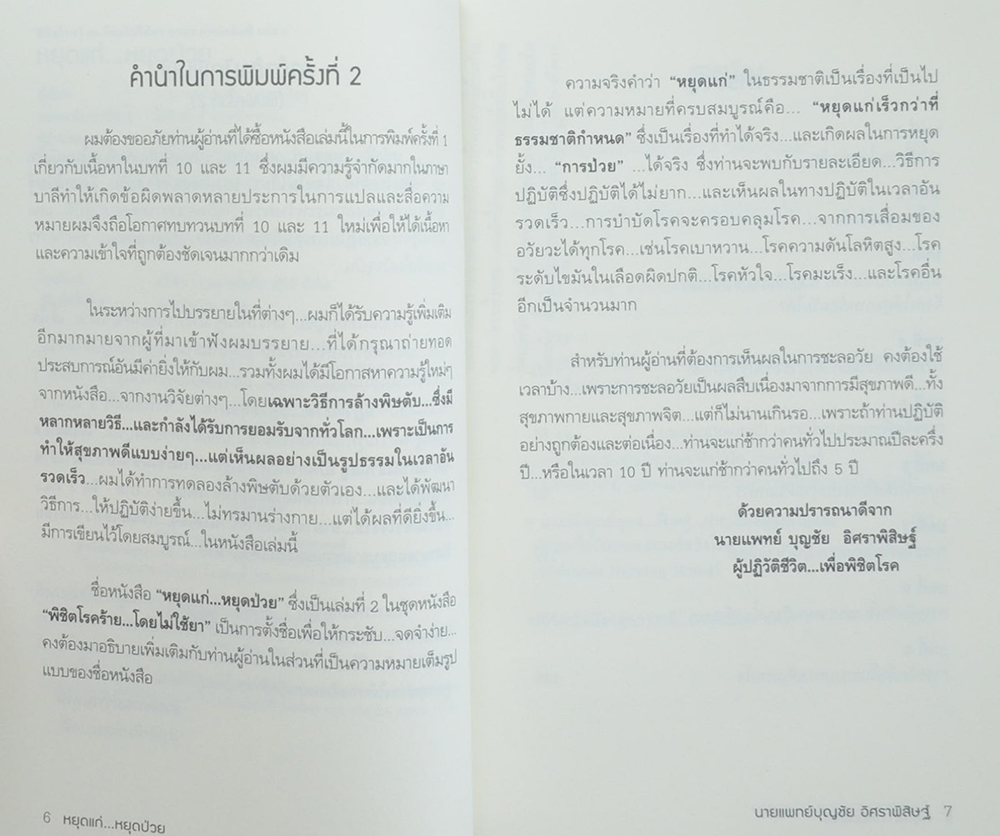 คำนำในการพิมพ์ครั้งที่ 2
ผมต้องขออภัยท่านผู้อ่านที่ได้ซื้อหนังสือเล่มนี้ในการพิมพ์ครั้งที่ 1
เกี่ยวกับเนื้อหาในบทที่ 10 และ 11 ซึ่งผมมีความรู้จำกัดมากในภาษา
บาลีทำให้เกิดข้อผิดพลาดหลายประการในการแปลและสื่อความ
หมายผมจึงถือโอกาสทบทวนบทที่ 10 และ 11 ใหม่เพื่อให้ได้เนื้อหา
และความเข้าใจที่ถูกต้องชัดเจนมากกว่าเดิม
ในระหว่างการไปบรรยายในที่ต่างๆ...ผมก็ได้รับความรู้เพิ่มเติม
อีกมากมายจากผู้ที่มาเข้าฟังผมบรรยาย...ที่ได้กรุณาถ่ายทอด
ประสบการณ์อันมีค่ายิ่งให้กับผม...รวมทั้งผมได้มีโอกาสหาความรู้ใหม่ๆ
จากหนังสือ...จากงานวิจัยต่างๆ...โดยเฉพาะวิธีการล้างพิษตับ...ซึ่งมี
หลากหลายวิธี...และกำลังได้รับการยอมรับจากทั่วโลก...เพราะเป็นการ
ทำให้สุขภาพดีแบบง่ายๆ...แต่เห็นผลอย่างเป็นรูปธรรมในเวลาอัน
รวดเร็ว...ผมได้ทำการทดลองล้างพิษตับด้วยตัวเอง...และได้พัฒนา
วิธีการ...ให้ปฏิบัติง่ายขึ้น...ไม่ทรมานร่างกาย...แต่ได้ผลที่ดียิ่งขึ้น...
มีการเขียนไว้โดยสมบูรณ์...ในหนังสือเล่มนี้
ชื่อหนังสือ "หยุดแก่...หยุดป่วย" ซึ่งเป็นเล่มที่ 2 ในชุดหนังสือ
"พิชิตโรคร้าย...โดยไม่ใช้ยา" เป็นการตั้งชื่อเพื่อให้กระชับ...จดจำง่าย...
คงต้องมาอธิบายเพิ่มเติมกับท่านผู้อ่านในส่วนที่เป็นความหมายเต็มรูป
แบบของชื่อหนังสือ
6 หยุดแก่...หยุดป่วย
ความจริงคำว่า "หยุดแก่" ในธรรมชาติเป็นเรื่องที่เป็นไป
ไม่ได้ แต่ความหมายที่ครบสมบูรณ์คือ... "หยุดแก่เร็วกว่าที่
ธรรมชาติกำหนด" ซึ่งเป็นเรื่องที่ทำได้จริง...และเกิดผลในการหยุด
ยั้ง... "การป่วย" ...ได้จริง ซึ่งท่านจะพบกับรายละเอียด...วิธีการ
ปฏิบัติซึ่งปฏิบัติได้ไม่ยาก...และเห็นผลในทางปฏิบัติในเวลาอัน
รวดเร็ว...การบำบัดโรคจะครอบคลุมโรค...จากการเสื่อมของ
อวัยวะได้ทุกโรค...เช่นโรคเบาหวาน...โรคความดันโลหิตสูง...โรค
ระดับไขมันในเลือดผิดปกติ...โรคหัวใจ...โรคมะเร็ง...และโรคอื่น
อีกเป็นจำนวนมาก
สำหรับท่านผู้อ่านที่ต้องการเห็นผลในการชะลอวัย คงต้องใช้
เวลาบ้าง...เพราะการชะลอวัยเป็นผลสืบเนื่องมาจากการมีสุขภาพดี...ทั้ง
สุขภาพกายและสุขภาพจิต...แต่ก็ไม่นานเกินรอ...เพราะถ้าท่านปฏิบัติ
อย่างถูกต้องและต่อเนื่อง...ท่านจะแก่ช้ากว่าคนทั่วไปประมาณปีละครึ่ง
ปี...หรือในเวลา 10 ปี ท่านจะแก่ช้ากว่าคนทั่วไปถึง 5 ปี
ด้วยความปรารถนาดีจาก
นายแพทย์ บุญชัย อิศราพิสิษฐ์
ผู้ปฏิวัติชีวิต...เพื่อพิชิตโรค
นายแพทย์บุญชัย อิศราพิสิษฐ์ 7